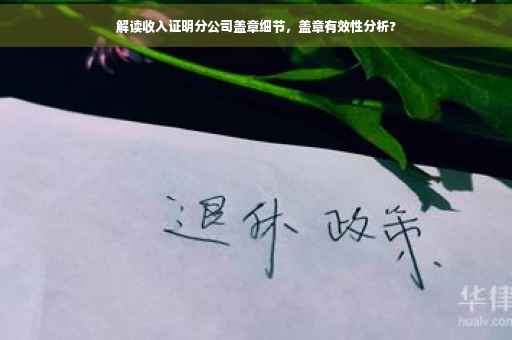 解读收入证明分公司盖章细节，盖章有效性分析?
退休 政策
华律
hualv.com